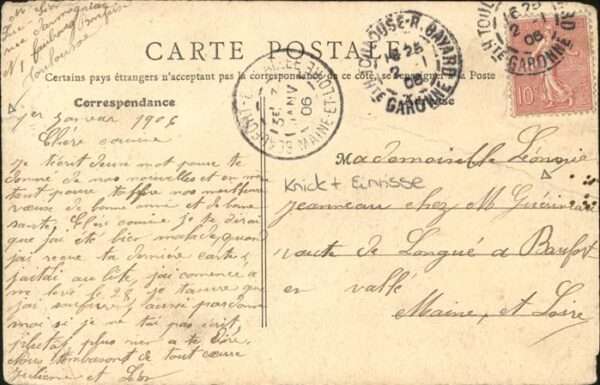 CARTE POSTALE
Certains pays étrangers n'acceptant pas la correspondance de ce côté, se renseigner à la Poste
Correspondance
1er janvier 1906
Chère cousine
Je tient deux mot pour te
donné de nos nouvelles et en même
tant pour toffre nos meilleurs
vœux de bonne anné et de bonne
santé Chère cousine je te dirai
que jai été bien malade, quand
jai reçue ta dernière carte,
jaitai au lite, jai comencé a
me levé le 28, je tassure que
jai soufert, aussi pardonne
moi si je ne tai pas écrit
plutot, plus rien a te dire,
Nous tembrasont de tout cœur
Julienne et Léon
Toulouse
TOULOUSE-R. BAYARD
16 25
2 - 1
06
Hte GARONNE
BEAUFORT-EN-VALLÉE
3
JANV
06
MAINE-ET-LOIRE
TOUL
16 25
2 - 1
06
Hte GARONNE
10
Mademoiselle Léonie
Knick + Einrisse
Jeanneau chez M Guérineau
route de Longué a Baufort
en vallé
Maine, et Loire